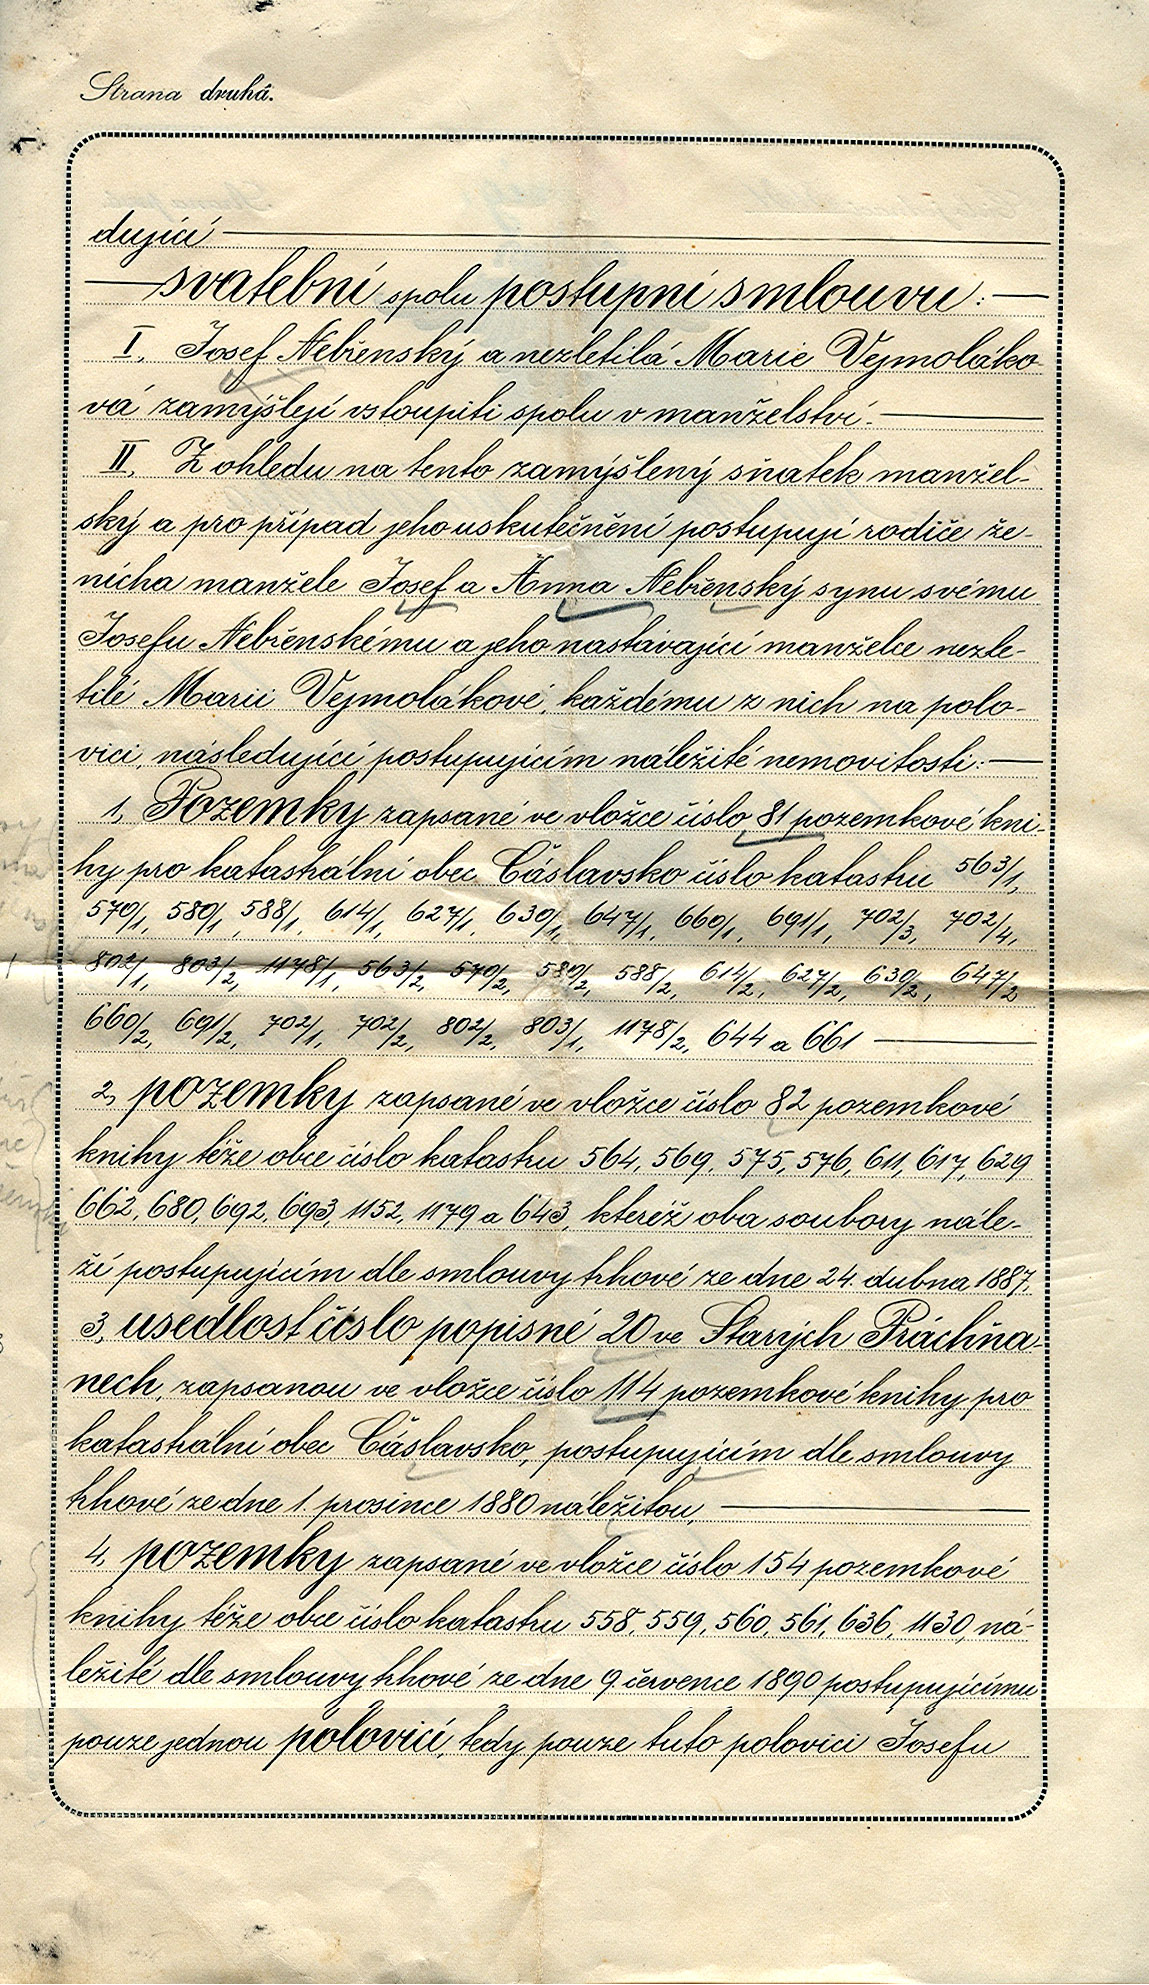 Strana druhá.
dující
svatební spolu postupní smlouvu:
I, Josef Nebřenský a nezletilá Marie Vejmoláko-
vá zamýšlejí vstoupiti spolu v manželství.
II, Z ohledu na tento zamýšlený sňatek manžel-
ský a pro případ jeho uskutečnění postupují rodiče že-
nicha manžele Josef a Anna Nebřenský synu svému
Josefu Nebřenskému a jeho nastávající manželce nezle-
tilé Marii Vejmolákové, každému z nich na polo-
vici, následující postupujícím náležité nemovitosti:
1, Pozemky zapsané ve vložce číslo 81 pozemkové kni-
hy pro katastrální obec Čáslavsko číslo katastru 563/1,
570/1, 580/1, 588/1, 614/1, 627/1, 630/1, 647/1, 660/1, 691/1, 702/3, 702/4,
802/1, 803/2, 1178/1, 563/2, 570/2, 580/2, 588/2, 614/2, 627/2, 630/2, 647/2
660/2, 691/2, 702/1, 702/2, 802/2, 803/1, 1178/2, 644 a 661
2, pozemky zapsané ve vložce číslo 82 pozemkové
knihy téže obce číslo katastru 564, 569, 575, 576, 611, 617, 629
662, 680, 692, 693, 1152, 1179 a 643, kteréž oba soubory nále-
ží postupujícím dle smlouvy trhové ze dne 24. dubna 1887,
3, usedlost číslo popisné 20 ve Starých Práchňa-
nech, zapsanou ve vložce číslo 114 pozemkové knihy pro
katastrální obec Čáslavsko, postupujícím dle smlouvy
trhové ze dne 1. prosince 1880 náležitou,
4, pozemky zapsané ve vložce číslo 154 pozemkové
knihy téže obce číslo katastru 558, 559, 560, 561, 636, 1130, ná-
ležité dle smlouvy trhové ze dne 9 července 1890 postupujícímu
pouze jednou polovicí, tedy pouze tuto polovici Josefu